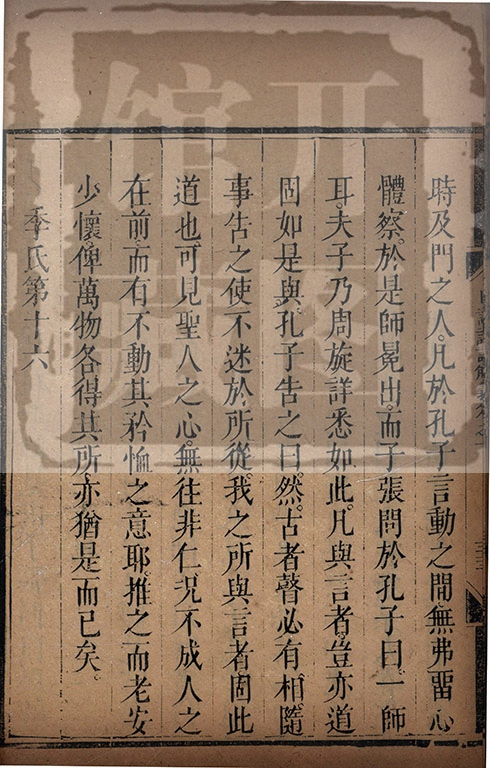 時及門之人凡於孔子言動之間無弗留心
體察於是師冕出而子張問於孔子曰一師
耳夫子乃周旋詳悉如此凡與言者豈亦道
固如是與孔子告之曰然古者瞽必有相隨
事告之使不迷於所從我之所與言者固此
道也可見聖人之心無往非仁況不成人之
在前而有不動其矜恤之意耶推之而老安
少懷俾萬物各得其所亦猶是而已矣
季氏第十六